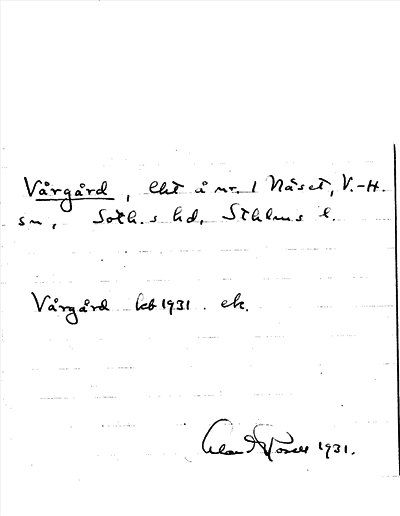 Vårgård, lht å nr 1 Näset, V.-H.
sn, Soth.s hd, Sthlms l.
Vårgård kb 1931. ek.
1931.